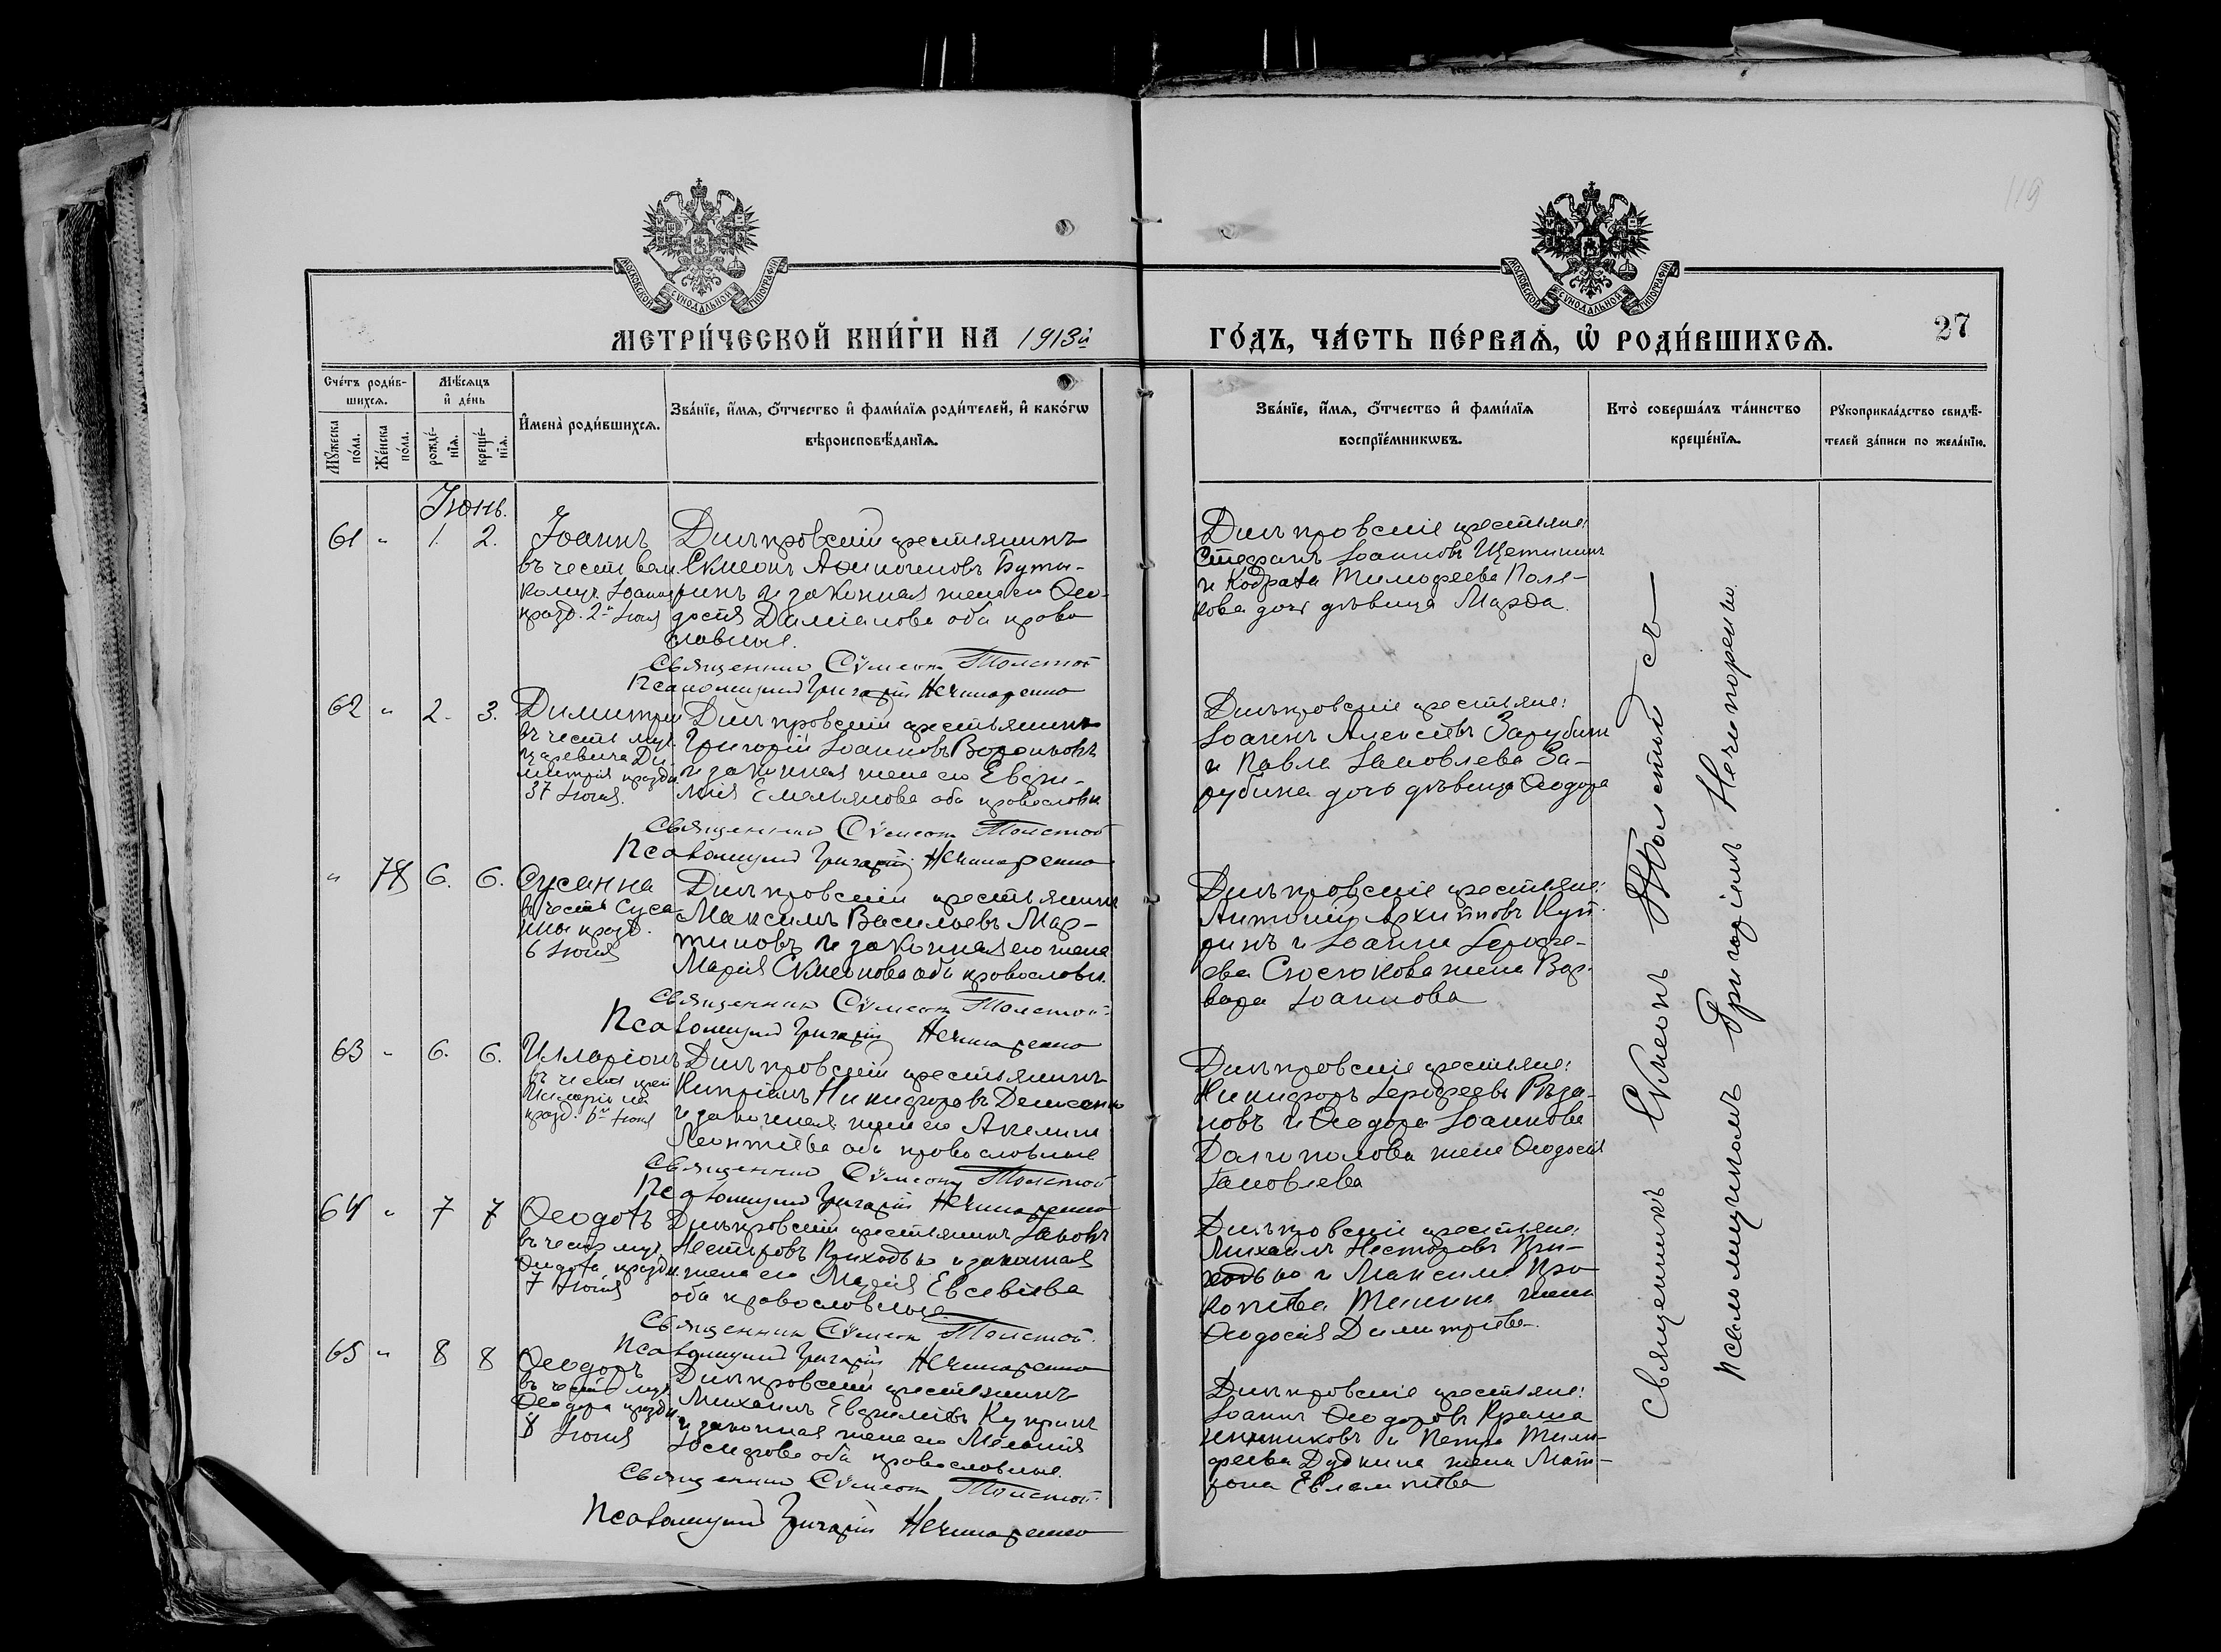 119
МОСКОВСКОЙ СѴНОДАЛЬНОЙ ТИПОГРАФІИ
МОСКОВСКОЙ СѴНОДАЛЬНОЙ ТИПОГРАФІИ
МЕТРИ́ЧЕСКОЙ КНИ́ГИ НА 1913й
ГО́ДЪ, ЧА́СТЬ ПЕ́РВАѦ, Ѡ҆ РОДИ́ВШИХСѦ. 27
Сче́тъ роди́в-
шихсѧ.
Мѣ́сѧцъ
и҆ де́нь
Мꙋ́жеска
по́ла.
Же́нска
по́ла.
рожде́-
нїѧ.
креще́-
нїѧ.
И҆мена̀ роди́вшихсѧ.
Зва́нїе, и҆́мѧ, ѻ҆́тчество и҆ фами́лїѧ роди́телей, и҆ како́гѡ
вѣроисповѣ́данїѧ.
Зва́нїе, и҆́мѧ, ѻ҆́тчество и҆ фами́лїѧ
воспрїе́мникѡвъ.
Кто̀ соверша́лъ та́инство
креще́нїѧ.
Рꙋкоприкла́дство свидѣ́-
телей за́писи по жела́нїю.
Іюнь.
61 " 1. 2. Іоаннъ
въ честь вели
комуч. Іоанна
празд. 2го Іюня
Днѣпровскій крестьянинъ
Сѵмеонъ Буты-
ринъ и законная жена его Ѳео-
досія Даміанова оба право
славные.
Священникъ Сѵмеонъ Толстой
Псаломщикъ Григорій Нечипоренко
Днѣпровскіе крестьяне:
Стефанъ Іоанновъ Щетининъ
и Кодрата Тимофеева Поля-
кова дочь дѣвица Марѳа.
62 " 2. 3. Димитрій
въ честь муч.
царевича Ди-
митрія праздн.
3го Іюня.
Днѣпровскій крестьянинъ
Григорій Іоанновъ Воронковъ
и законная жена его Евфи-
мія Емельянова оба православн.
Священникъ Сѵмеонъ Толстой
Псаломщикъ Григорій Нечипоренко
Днѣпровскіе крестьяне:
Іоаннъ Алексѣевъ Зарубинъ
и Павла Іаковлева За-
рубина дочь дѣвица Ѳеодора
" 78 6. 6. Сусанна
въ честь Суса
нны празд.
6 Іюня
Днѣпровскій крестьянинъ
Максимъ Васильевъ Мар-
тиновъ и законная его жена
Марія Сѵмеонова оба православн.
Священникъ Сѵмеонъ Толстой
Псаломщикъ Григорій Нечипоренко
Днѣпровскіе крестьяне:
Антоній Архиповъ Куп-
ринъ и Іоанна Іероѳе-
ева жена Вар-
вара Іоаннова
63 " 6. 6. Илларіонъ
въ честь преп
Илларіона
празд. 6го Іюня
Днѣпровскій крестьянинъ
Кипріанъ Никифоровъ Денисенко
и законная жена его Акилина
Леонтіева оба православные
Священникъ Сѵмеонъ Толстой
Псаломщикъ Григорій Нечипоренко
Днѣпровскіе крестьяне:
Никифоръ Іероѳеевъ Ряза-
новъ и Ѳеодора Іоаннова
Долгополова жена Ѳеодосія
Іаковлева
64 " 7 7 Ѳеодотъ
въ честь муч.
Ѳеодота праздн.
7 Іюня
Днѣпровскій крестьянинъ Іаковъ
Несторовъ Приходько и законная
жена его Марія Евсевіева
оба православные.
Священникъ Сѵмеонъ Толстой.
Псаломщикъ Григорій Нечипоренко
Днѣпровскіе крестьяне:
Михаилъ Несторовъ При-
ходько и Максима Про-
копіева жена
Ѳеодосія Димитріева.
65 " 8 8 Ѳеодоръ
въ честь муч.
Ѳеодора праздн.
8 Іюня
Днѣпровскій крестьянинъ
Михаилъ Евфиміевъ Купринъ
и законная жена его Меланія
Іосифова оба православные.
Священникъ Сѵмеонъ Толстой.
Псаломщикъ Григорій Нечипоренко
Днѣпровскіе крестьяне:
Іоаннъ Ѳеодоровъ Краше
нинниковъ и Петра Тимо-
феева Дудкина жена Мат-
рона Евлампіева
Священникъ Сѵмеонъ Толстой съ
Псаломщикомъ Григоріемъ Нечипоренко.